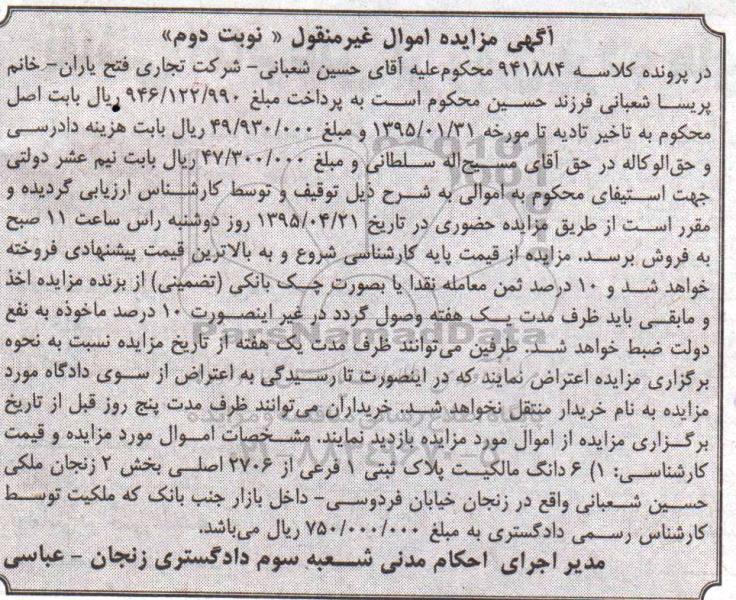 آگهی مزایده اموال غیرمنقول « نوبت دوم»
در پرونده کلاسه ۹۴۱۸۸۴ محکوم‌علیه آقای حسین شعبانی- شرکت تجاری فتح یاران- خانم
پریسا شعبانی فرزند حسین محکوم است به پرداخت مبلغ ۹۴۶/۱۲۲/۹۹۰ ریال بابت اصل
محکوم به تاخیر تادیه تا مورخه ۱۳۹۵/۰۱/۳۱ و مبلغ ۴۹/۹۳۰/۰۰۰ ریال بابت هزینه دادرسی
و حق‌الوکاله در حق آقای مسیح‌اله سلطانی و مبلغ ۴۷/۳۰۰/۰۰۰ ریال بابت نیم عشر دولتی
جهت استیفای محکوم به اموالی به شرح ذیل توقیف و توسط کارشناس ارزیابی گردیده و
مقرر است از طریق مزایده حضوری در تاریخ ۱۳۹۵/۰۴/۲۱ روز دوشنبه راس ساعت ۱۱ صبح
به فروش برسد. مزایده از قیمت پایه کارشناسی شروع و به بالاترین قیمت پیشنهادی فروخته
خواهد شد و ۱۰ درصد ثمن معامله نقدا یا بصورت چک بانکی (تضمینی) از برنده مزایده اخذ
و مابقی باید ظرف مدت یک هفته وصول گردد در غیر اینصورت ۱۰ درصد ماخوذه به نفع
دولت ضبط خواهد شد. طرفین می‌توانند ظرف مدت یک هفته از تاریخ مزایده نسبت به نحوه
برگزاری مزایده اعتراض نمایند که در اینصورت تا رسیدگی به اعتراض از سوی دادگاه مورد
مزایده به نام خریدار منتقل نخواهد شد. خریداران می‌توانند ظرف مدت پنج روز قبل از تاریخ
برگزاری مزایده از اموال مورد مزایده بازدید نمایند. مشخصات اموال مورد مزایده و قیمت
کارشناسی: ۱) ۶ دانگ مالکیت پلاک ثبتی ۱ فرعی از ۲۷۰۶ اصلی بخش ۲ زنجان ملکی
حسین شعبانی واقع در زنجان خیابان فردوسی- داخل بازار جنب بانک که ملکیت توسط
کارشناس رسمی دادگستری به مبلغ ۷۵۰/۰۰۰/۰۰۰ ریال می‌باشد.
مدیر اجرای احکام مدنی شعبه سوم دادگستری زنجان - عباسی
ParsNamadData